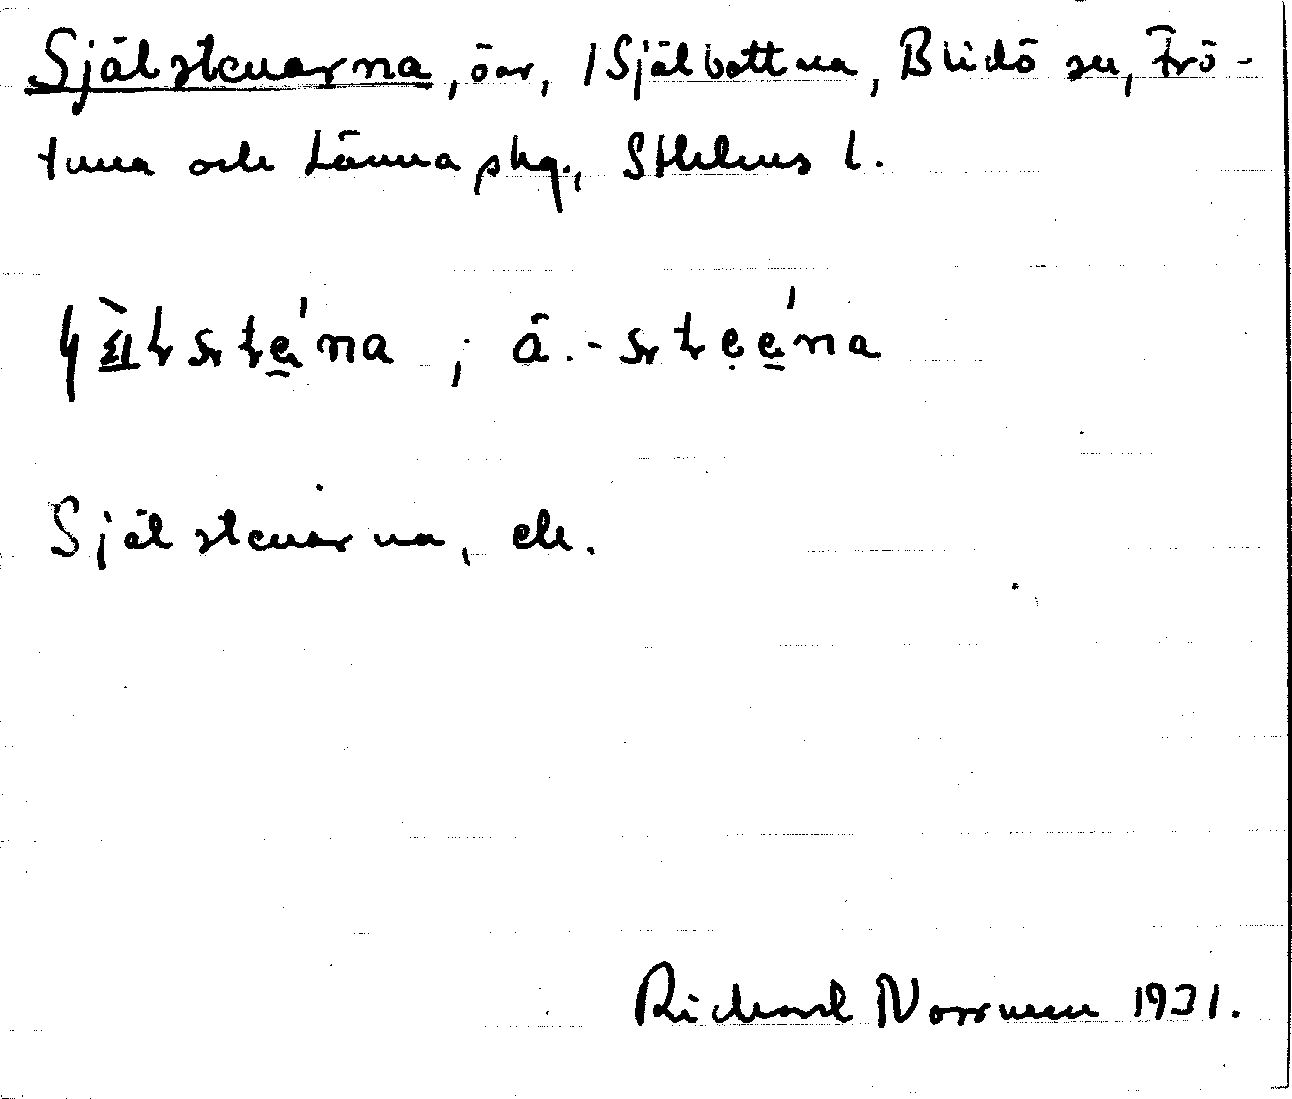 Själstenarna, öar, /Själbottna, Blidö sn, Frö-
tuna och Länna shg., Sthlms l.
; ä.-
Själstenarna, ek.
Richard Norrman 1931.